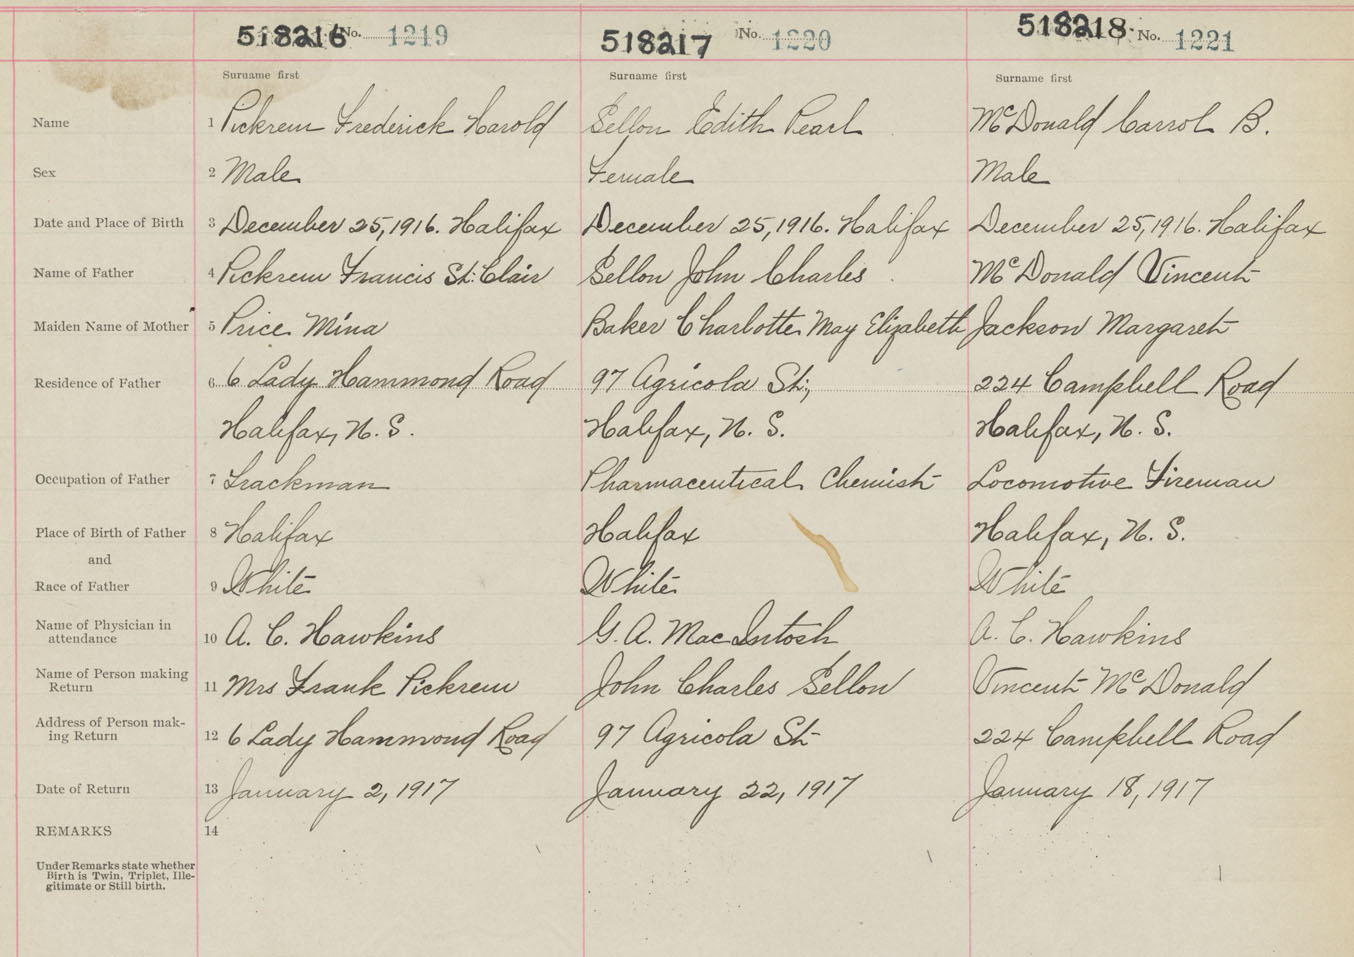 518216 No. 1219 518217 No. 1220 518218 No. 1221
Surname first Surname first Surname first
Name 1 Pickrem Frederick Harold Sellon Edith Pearl McDonald Carrol B.
Sex 2 Male Female Male
Date and Place of Birth 3 December 25, 1916. Halifax December 25, 1916. Halifax December 25, 1916. Halifax
Name of Father 4 Pickrem Francis St. Clair Sellon John Charles McDonald Vincent
Maiden Name of Mother 5 Price Mina Baker Charlotte May Elizabeth Jackson Margaret
Residence of Father 6 6 Lady Hammond Road 97 Agricola St., 224 Campbell Road
Halifax, N. S. Halifax, N. S. Halifax, N. S.
Occupation of Father 7 Trackman Pharmaceutical Chemist Locomotive Fireman
Place of Birth of Father 8 Halifax Halifax Halifax, N. S.
and
Race of Father 9 White White White
Name of Physician in
attendance 10 A. C. Hawkins G. A. MacIntosh A. C. Hawkins
Name of Person making
Return 11 Mrs Frank Pickrem John Charles Sellon Vincent McDonald
Address of Person mak-
ing Return 12 6 Lady Hammond Road 97 Agricola St 224 Campbell Road
Date of Return 13 January 2, 1917 January 22, 1917 January 18, 1917
REMARKS 14
Under Remarks state whether
Birth is Twin, Triplet, Ille-
gitimate or Still birth.